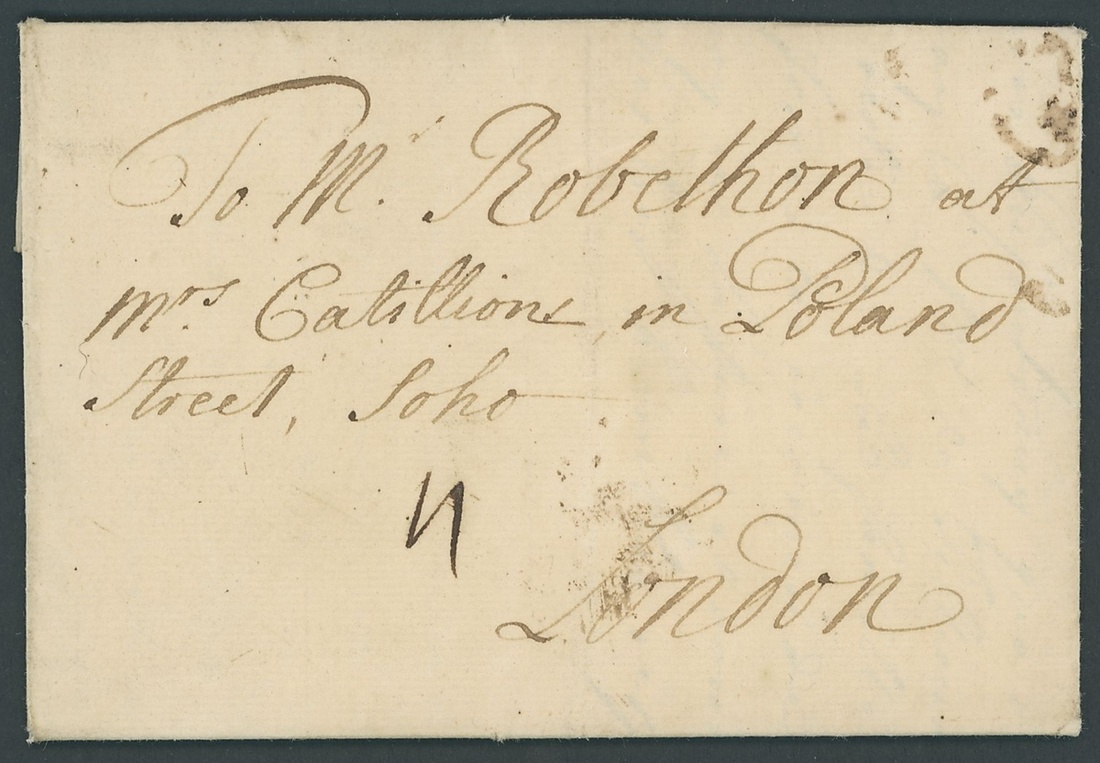 To Mr. Robethon at
Mrs. Catillions in Poland
Street, Soho
4
London